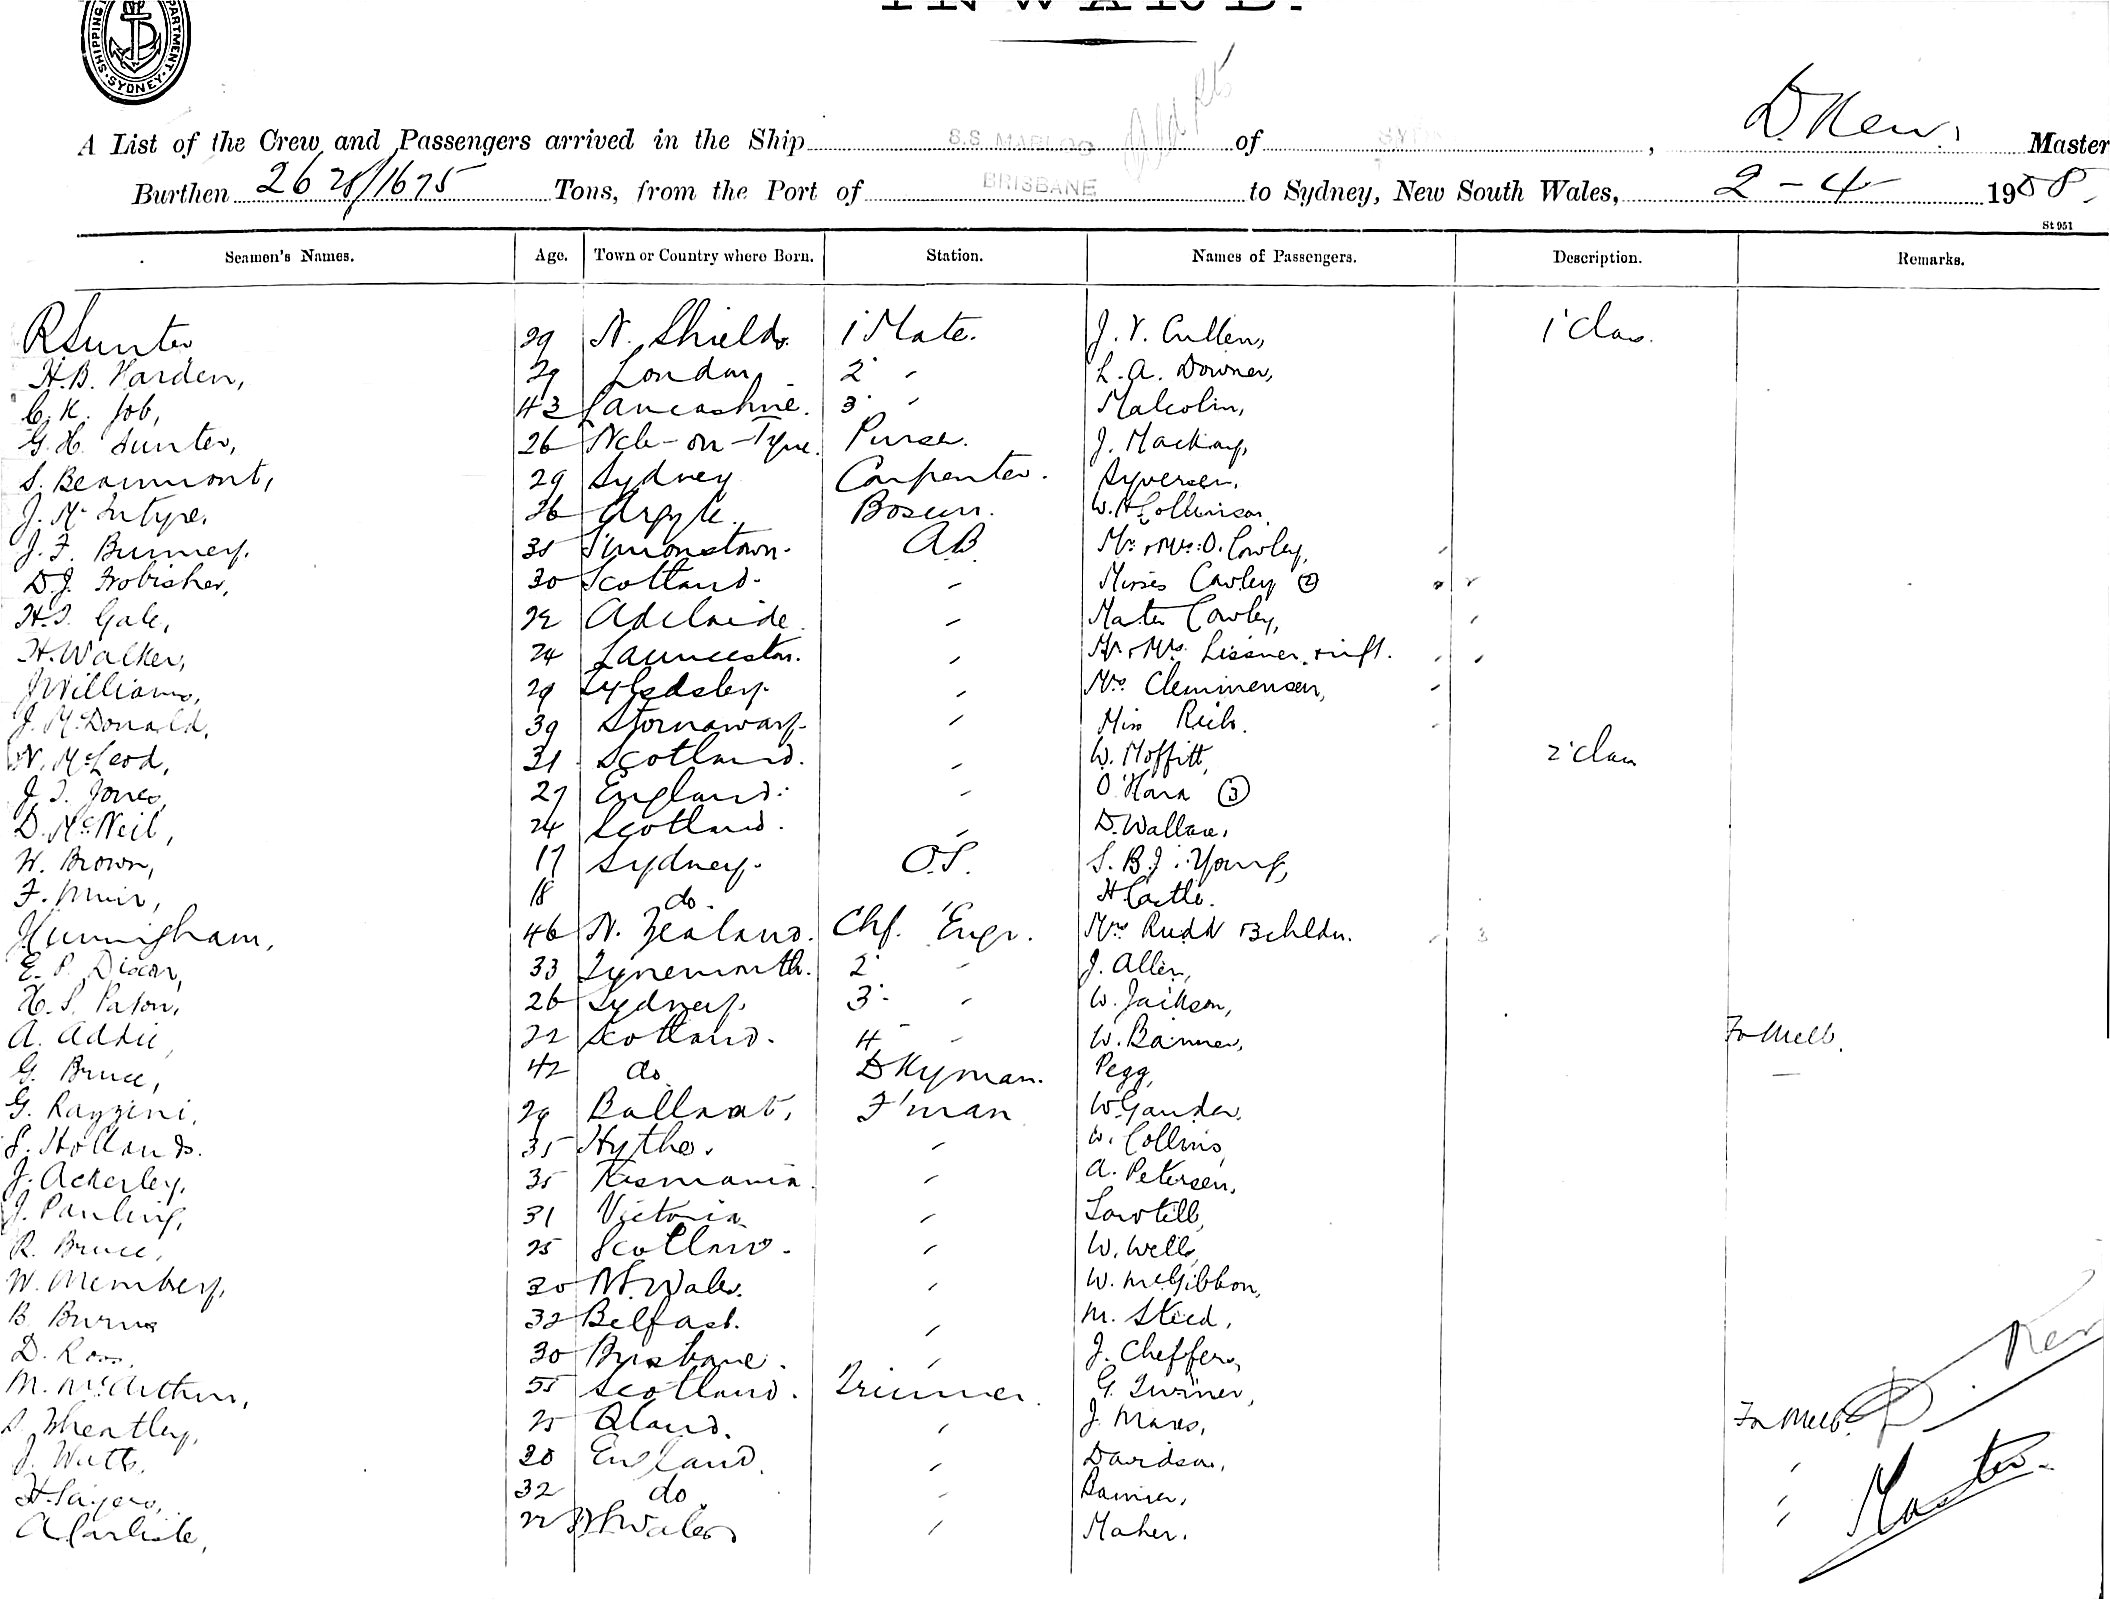 INWARD.
SHIPPING DEPARTMENT. SYDNEY.
A List of the Crew and Passengers arrived in the Ship S.S. MARLOO of SYD , D. Kew. Master
Burthen 2628/1675 Tons, from the Port of BRISBANE to Sydney, New South Wales, 2 - 4 1908.
St 951
Seamen's Names. Age. Town or Country where Born. Station. Names of Passengers. Description. Remarks.
R Sunter 29 N. Shields. 1' Mate. J. V. Cullen, 1' Class.
H.B. Varden, 29 London 2' " L. A. Downer,
C. K. Job, 43 Lancashire. 3' " Malcolm,
G. H. Sunter, 26 Ncle-on-Tyne. Purser. J. Mackay,
S. Beaumont, 29 Sydney Carpenter. Syversen,
J. McIntyre. 36 Argyle. Bosun. W. H. Collinson,
J. F. Burney. 35 Simonstown. A.B. Mr & Mrs. O. Cowley,
D. J. Frobisher, 30 Scotland. " Misses Cowley (2)
H. J. Gale, 22 Adelaide. " Master Cowley,
H. Walker, 24 Launceston. " Mr & Mrs. Lissner & inft.
J Williams, 29 " Mrs. Clemmensen,
J. McDonald. 39 Stornaway. " Miss
N. McLeod, 31 Scotland. " W. Moffitt, 2' Class
J. J. Jones, 27 England. " O'Hara (3)
D. McNeil, 24 Scotland. " D. Wallace,
W. Brown, 17 Sydney. O.S. S. B. J. Young,
F. Muir, 18 do. H Castle.
J Cunningham, 46 N. Zealand. Chf. Engr. Mrs Rudd & 3 chldn. 3
E. P. Dixon, 33 Tynemouth. 2' " J. Allen,
H. S. Paton, 26 Sydney. 3' " W. Jackson,
A. Addie, 22 Scotland. 4' " W. Banner, For Melb.
G. Bruce, 42 do. Dkyman. Pegg,
G. Razzini, 29 Ballarat, F'man W. Gander,
S. Hollands. 35 Hythe. " W. Collins,
J. Ackerley, 35 Tasmania. " A. Petersen,
J. Pauling, 31 Victoria "
R. Bruce, 25 Scotland. " W. Wells,
W. Membrey, 30 N.S. Wales. " W. McGibbon,
B. Burns 32 Belfast. " M. Steed,
D. Ross, 30 Brisbane. " J. Cheffers,
M. McArthur, 55 Scotland. Trimmer. G. Turner,
S. Wheatley, 25 Qland. " J. Mares, For Melb.
J. Watts, 20 England. " Davidson, "
H. Sayers, 32 do. " "
A Carlisle, 22 N S Wales " Maher.
D. Kew
Master.